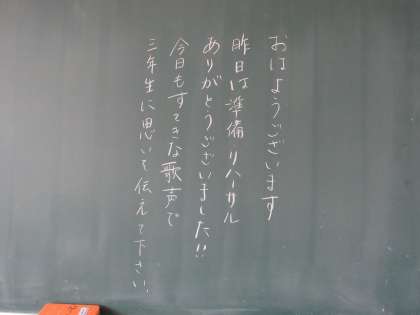 おはようございます
昨日は準備・リハーサル
ありがとうございました!!
今日もすてきな歌声で
三年生に思いを伝えて下さい。